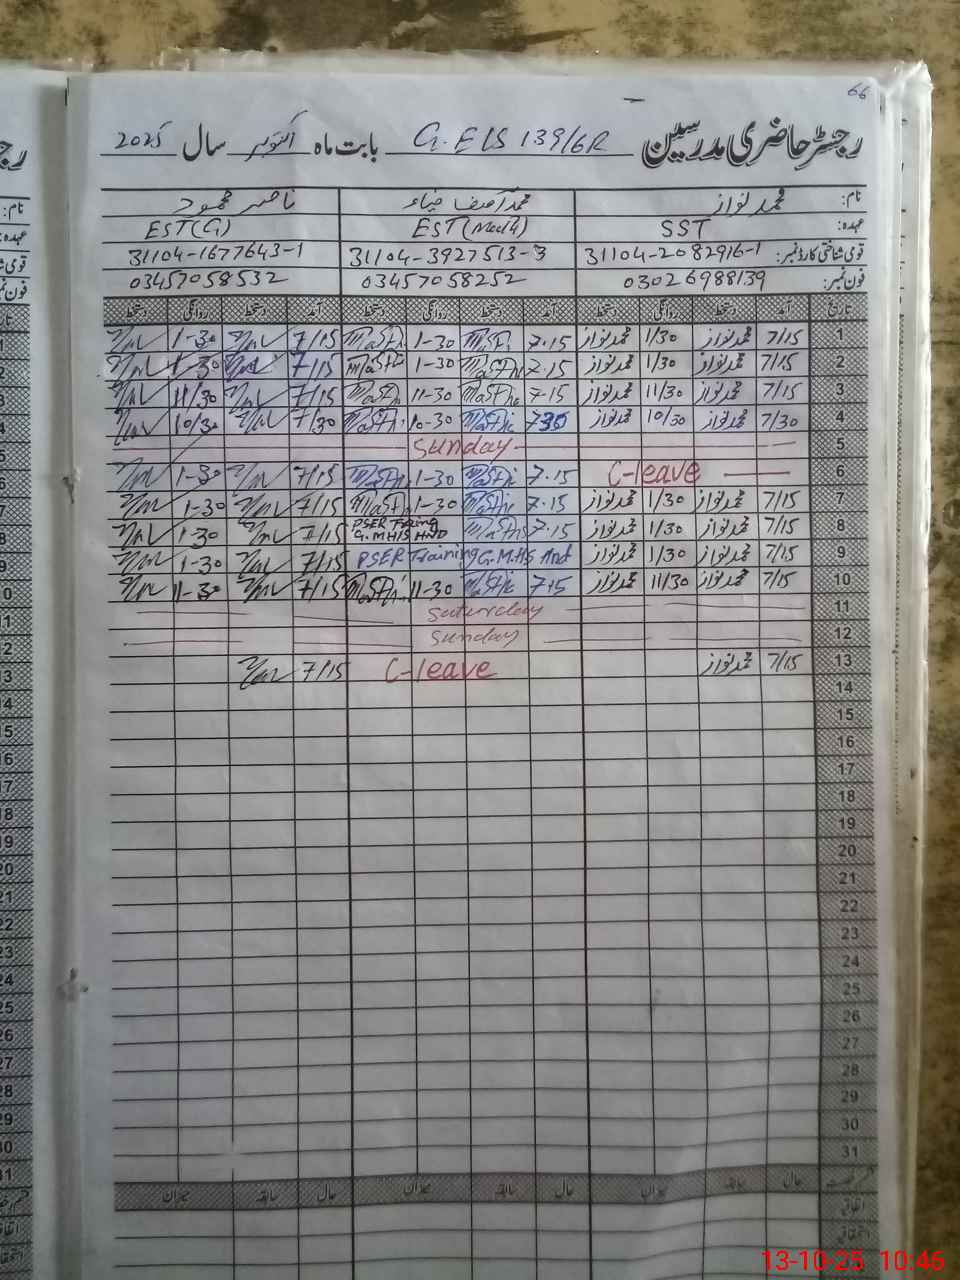 66
رجسٹر حاضری مدرسین G. E/S 139/6R بابت ماہ اکتوبر سال 2025
نام: محمد نواز محمد آصف ضیاء ناصر محمود
عہدہ: SST EST EST(G)
قومی شناختی کارڈ نمبر: 31104-2082916-1 31104-3927513-3 31104-1677643-1
فون نمبر: 03026988139 03457058252 03457058532
تاریخ آمد دستخط روانگی دستخط آمد دستخط روانگی دستخط آمد دستخط روانگی دستخط
1 7/15 محمد نواز 1/30 محمد نواز 7.15 1-30 7/15 1-30
2 7/15 محمد نواز 1/30 محمد نواز 7.15 1-30 7/15 1-30
3 7/15 محمد نواز 11/30 محمد نواز 7-15 11-30 7/15 11/30
4 7/30 محمد نواز 10/30 محمد نواز 730 10-30 7/30 10/30
5 Sunday
6 C-leave 7.15 1-30 7/15 1-30
7 7/15 محمد نواز 1/30 محمد نواز 7.15 1-30 7/15 1-30
8 7/15 محمد نواز 1/30 محمد نواز 7.15 PSER G.MHS HND 7/15 1-30
9 7/15 محمد نواز 1/30 محمد نواز PSER Training G.MHS Hnd 7/15 1-30
10 7/15 محمد نواز 11/30 محمد نواز 7.15 11-30 7/15 11-30
11 Saturday
12 Sunday
13 7/15 محمد نواز C-leave 7/15
14
15
16
17
18
19
20
21
22
23
24
25
26
27
28
29
30
31
حال سابقہ میزان حال سابقہ میزان حال سابقہ میزان
اتفاقیہ
13-10-25 10:46